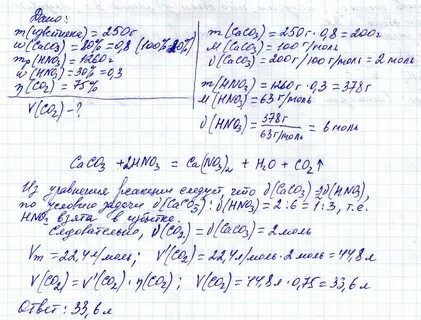 Дано:
m(известняка) = 250г
w(CaCO₃) = 80% = 0,8 (100%-20%)
mр(HNO₃) = 1260г
w(HNO₃) = 30% = 0,3
η(CO₂) = 75%
V(CO₂) - ?
m(CaCO₃) = 250г · 0,8 = 200г
M(CaCO₃) = 100 г/моль
ν(CaCO₃) = 200г/100г/моль = 2 моль
m(HNO₃) = 1260г · 0,3 = 378г
M(HNO₃) = 63 г/моль
ν(HNO₃) = 378г / 63г/моль = 6 моль
CaCO₃ + 2HNO₃ = Ca(NO₃)₂ + H₂O + CO₂↑
Из уравнения реакции следует, что ν(CaCO₃)=2ν(HNO₃),
по условию задачи ν(CaCO₃) : ν(HNO₃) = 2 : 6 = 1:3, т.е.
HNO₃ взята в избытке.
Следовательно, ν(CO₂) = ν(CaCO₃) = 2 моль
Vm = 22,4 л/моль; V'(CO₂) = 22,4 л/моль · 2 моль = 44,8 л
V(CO₂) = V'(CO₂) · η(CO₂); V(CO₂) = 44,8 л · 0,75 = 33,6 л
Ответ: 33,6 л